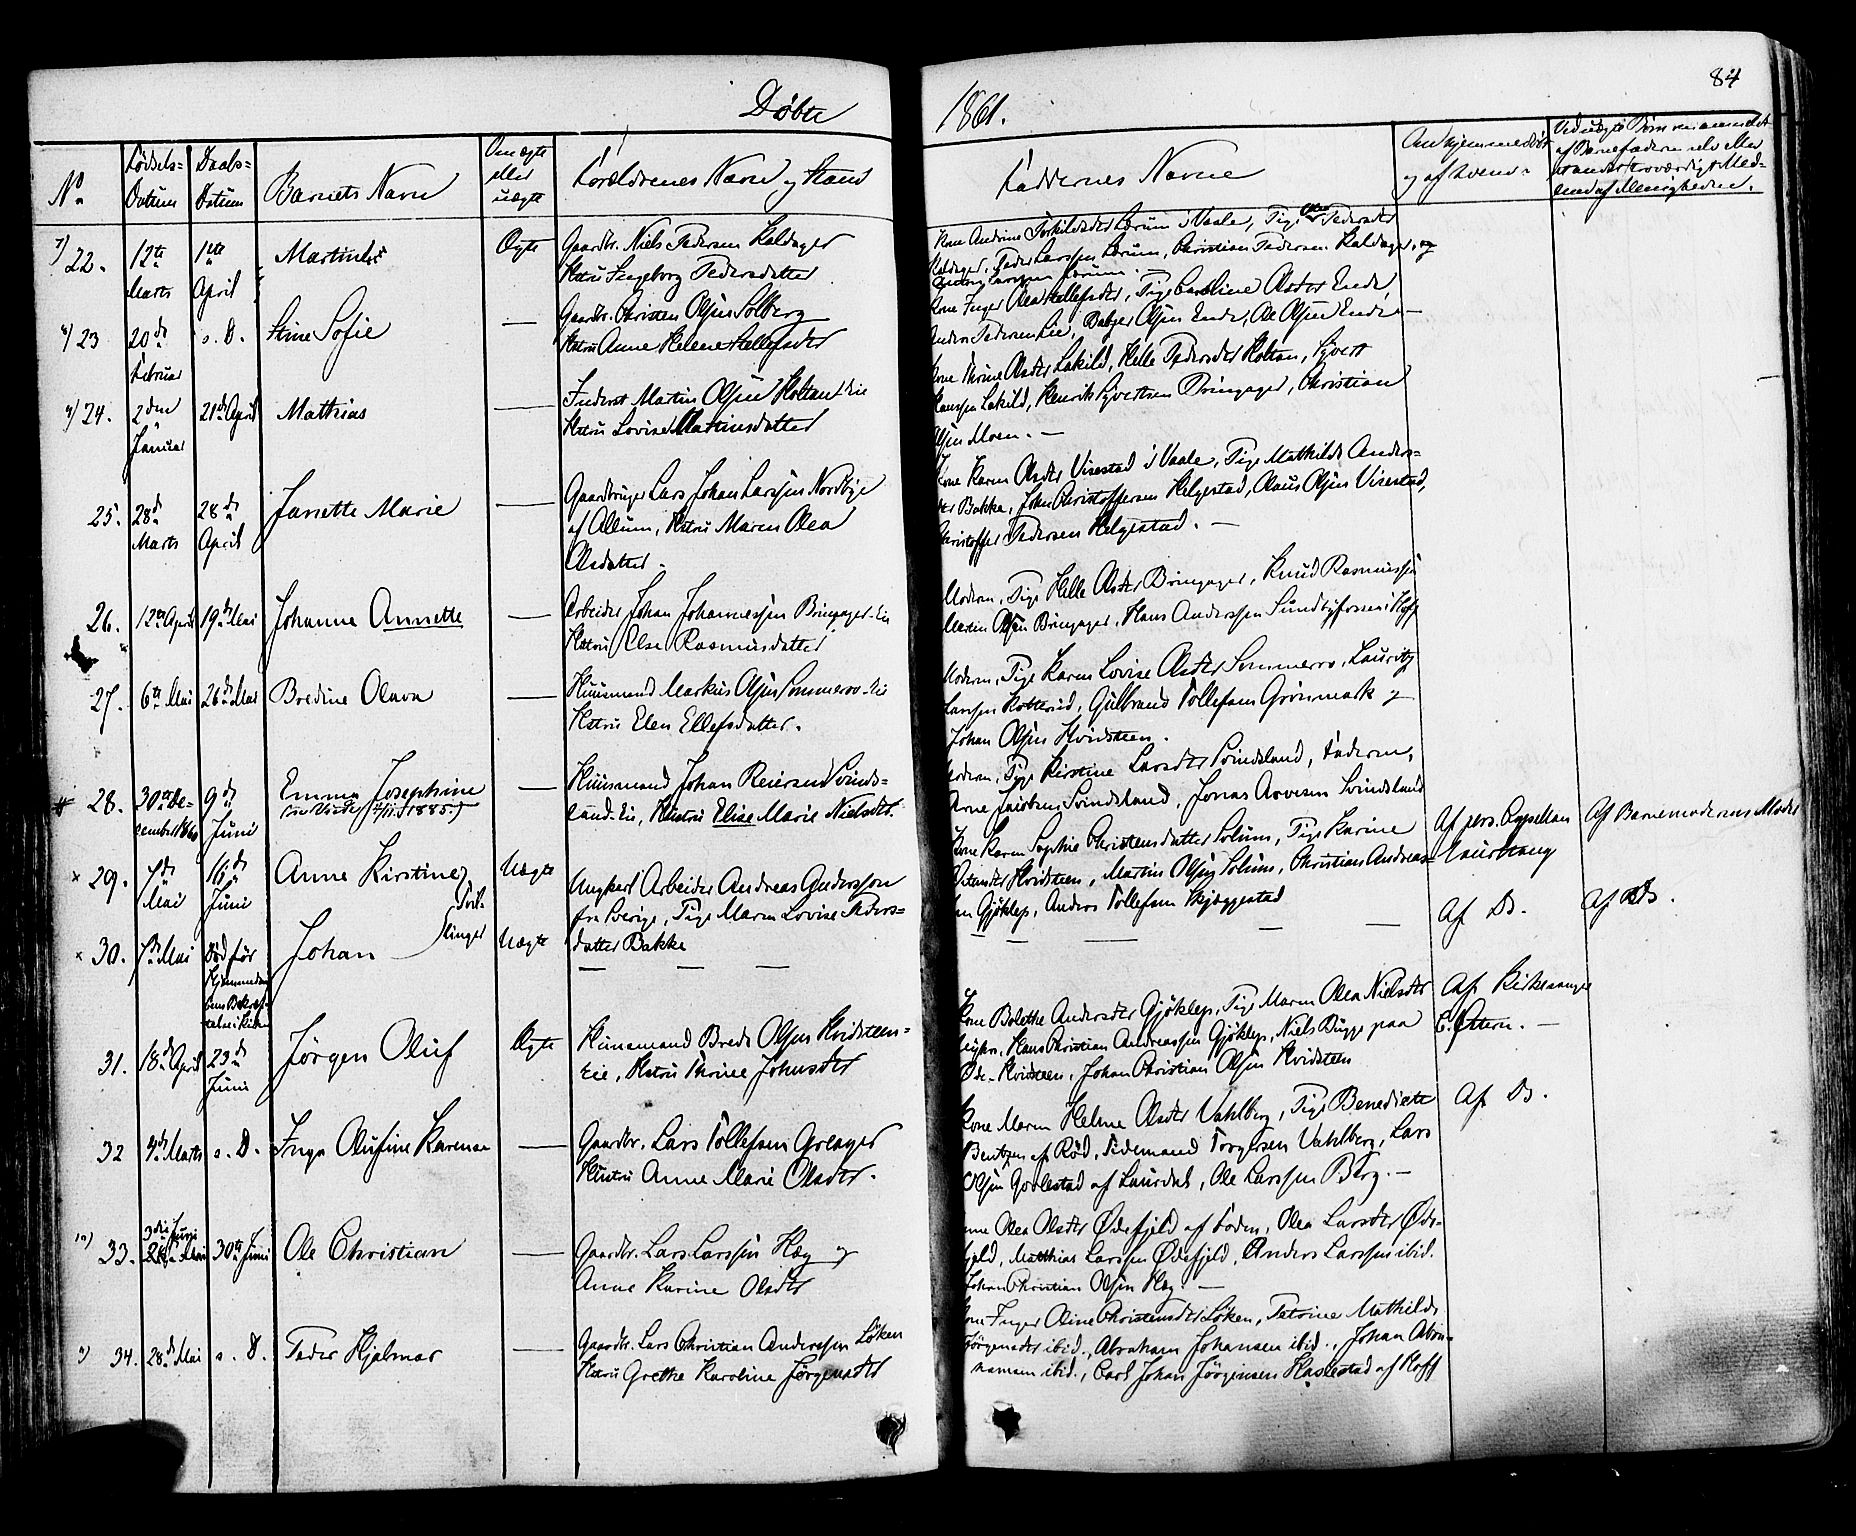 Døbte
1861.
84
No
Fødsels-
Datum
Daabs-
Datum
Barnets Navn
Om ægte
eller
uægte
Forældrenes Navn og Stand
Faddernes Navne
Om hjemmedøbt
og af hvem
Ved uægte Børn
af Barnefaderen selv eller
af andet troværdigt Med-
lem af Menigheden.
22.
12te
Marts
1ste
April
Ægte
Gaardbr. Niels Pedersen Kaldager
Hstru Ingeborg Pedersdatter
Kone Andrine Lørum i Vaale, Pige Pedersdtr
Kaldager, Peder Larssen Lørum, Christian Pedersen Kaldager, og
Larssen Lørum.
23
20de
Februar
s. D.
Stine Sofie
—
Gaardbr. Christen Olsen Solberg
Hstru Anne Helene
Kone Inger Olea, Pige Caroline Olsdtr Ende,
Anders Pedersen Lie, Olsen Ende, Ole Olsen Ende. —
24.
2den
Januar
21de April
Mathias
—
Inderst Martin Olsen Holtan Eie
Hstru Lovise Martinsdatter
Kone Thrine Olsdtr Lakild, Helle Pedersdtr Holtan, Syvert
Hanssen Lakild, Henrik Syvertsen Bringager, Christian
Olsen Moen. —
25.
28de
Marts
28de
April
Janette Marie
—
Gaardbruger Lars Johan Larssen Nordbye
af Ollum, Hstru Maren Olea
Olsdatter.
Kone Karen Olsdtr Visestad i Vaale, Pige Mathilde Anders-
dtr Bakke, John Christoffersen Helgestad, Olaus Olsen Visestad,
Christoffer Pedersen Helgestad. —
26.
12te April
19de Mai
Johanne Annette
—
Arbeider Johan Johannessen Bringager-Eie
Hstru Else Rasmusdatter
Moderen, Pige Helle Olsdtr Bringager, Knud Rasmussen
Martin Olsen Bringager, Hans Anderssen Sundbyfossen i Hoff
27.
6te Mai
26de Mai
Bredine Olava
—
Huusmand Markus Olsen Sommero-Eie
Hstru Elen Ellefsdatter.
Moderen, Pige Karen Lovise Olsdtr Sommero, Lauritz
Larssen Kotterud, Gulbrand Tollefsen Grønmark og
Johan Olsen Hvidsteen.
28.
30te De-
cember 1860
9de
Juni
Emma Josephine
—
Huusmand Johan Reiersen Svinds-
land-Eie, Hustru Elise Marie Nielsdtr.
Moderen, Pige Kirstine Larsdtr Svindsland, Faderen,
Arne Jacobsen Svindsland, Jonas Arvesen Svindsland
× 29.
7de
Mai
16de
Juni
Anne Kirstine
Tvil-
linger
Uægte
Ungkarl Arbeider Andreas Andersson
fra Sverige, Pige Maren Lovise Peders-
datter Bakke
Kone Karen Sophie Christensdatter Solum, Pige Karine
Hvidsteen, Martin Olsen Solum, Christian Andreas-
sen Gjøklep, Anders Tollefsen Skjeggestad
Af pers. Capellan
Af Barnemoderens Moder
× 30.
7de Mai
død før
Hjemmedaa-
bens Bekræf-
telse i Kirken
Johan
Uægte
— — —
— — — — —
Af Ds.
Af Ds.
31.
18de April
23de
Juni
Jørgen Oluf
Ægte
Huusmand Brede Olsen Hvidsteen-
Eie, Hstru Thrine Johnsdtr
Kone Bolethe Andersdtr Gjøklep, Pige Maren Olea Nielsdtr
Hans Christian Andreassen Gjøklep, Niels Bugge paa
Øde-Hvidsteen, Johan Christian Olsen Hvidsteen
Af Kirkesanger
32
4de Marts
s. D.
Inga Olufine Karense
—
Gaardbr. Lars Tollefsen Greager
Hustru Anne Marie Olsdtr.
Kone Maren Helene Olsdtr Vahlberg, Pige Benedicte
Bentzen af Rød, Tidemand Torgersen Vahlberg, Lars
Olsen af Laurdal, Ole Larssen Berg. —
Af Ds.
33.
3die Juni
30te Juni
Ole Christian
—
Gaardbr. Lars Larssen Hæg og
Anne Karine Olsdtr
Olea Olsdtr Ødefjeld af Foden, Olea Larsdtr Øde-
fjeld, Matthias Larssen Ødefjeld, Anders Larssen ibid.
Johan Christian Olsen Hæg. —
34.
28de Mai
s. D.
Peder Hjalmar
—
Gaardbr. Lars Christian Anderssen Løken
Hstru Grethe Karoline Jørgensdtr
Kone Inger Oline Christensdtr Løken, Petrine Mathilde
Jørgensdtr ibid., Abraham Johansen ibid., Johan Abra-
hamsen ibid., Carl Johan Jörgensen Haslestad af Hoff